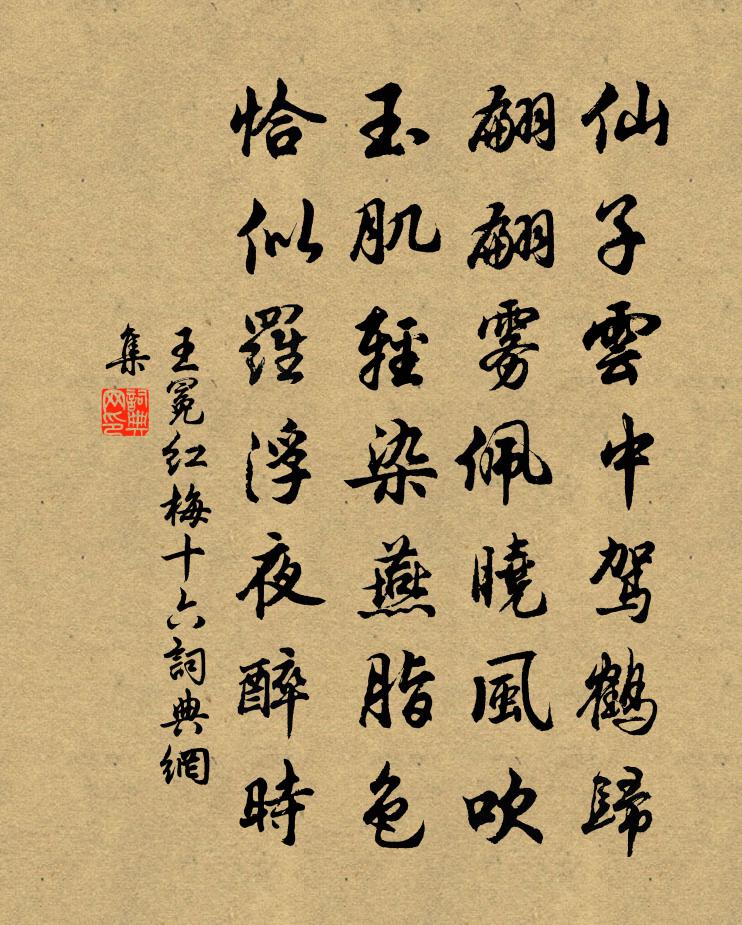 仙子雲中駕鶴歸
翩翩雾佩曉風吹
玉肌輕染燕脂色
恰似羅浮夜醉時
王冕红梅十六詞典網
集
詞典
网印